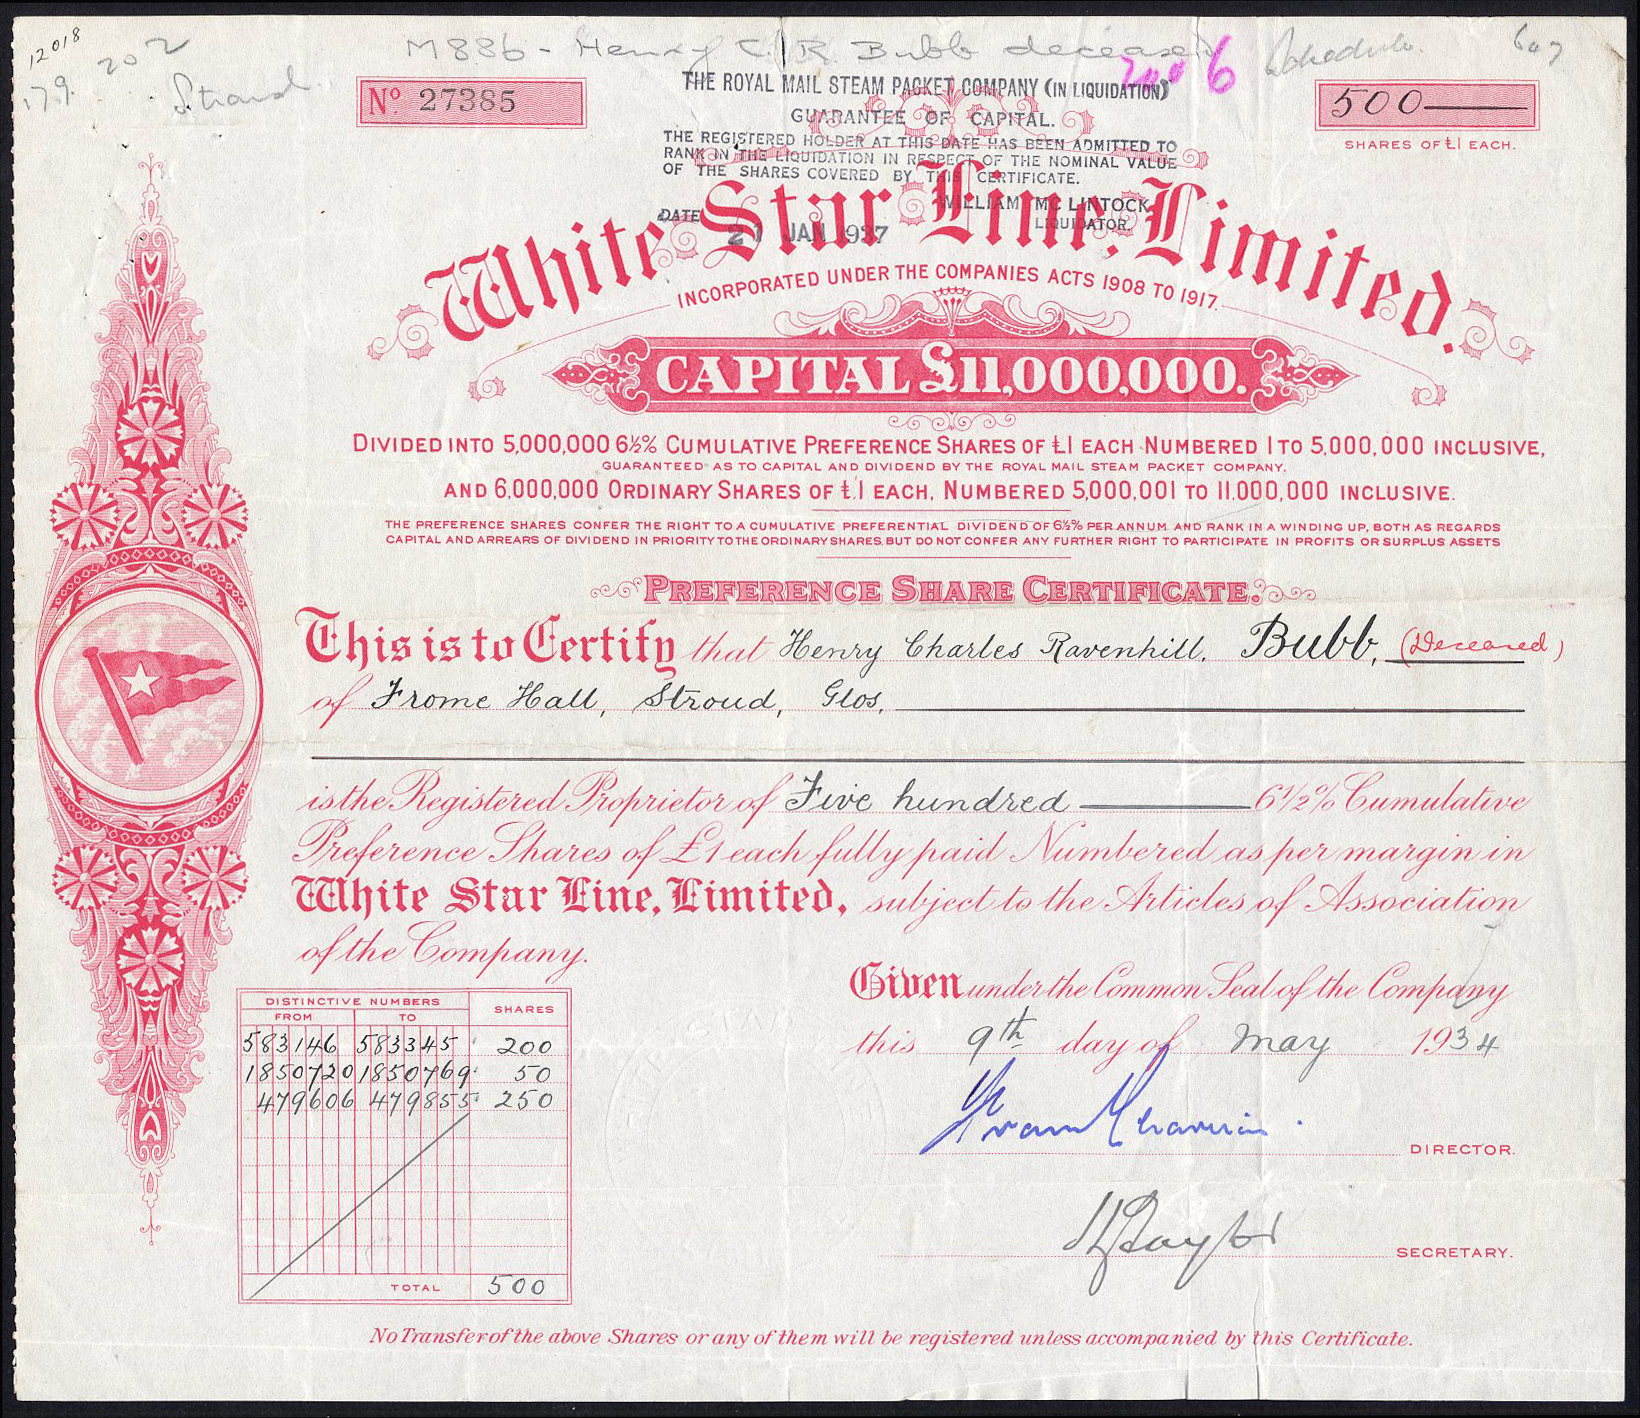 12018
179.
202
M886 - Henry C. R. Bubb deceased
6
607
Nº 27385
THE ROYAL MAIL STEAM PACKET COMPANY (IN LIQUIDATION)
GUARANTEE OF CAPITAL.
THE REGISTERED HOLDER AT THIS DATE HAS BEEN ADMITTED TO
RANK IN THE LIQUIDATION IN RESPECT OF THE NOMINAL VALUE
OF THE SHARES COVERED BY THIS CERTIFICATE.
WILLIAM MC LINTOCK
LIQUIDATOR.
DATE 21 JAN 1937
500
SHARES OF £1 EACH.
White Star Line, Limited.
INCORPORATED UNDER THE COMPANIES ACTS 1908 TO 1917.
CAPITAL £11,000,000.
DIVIDED INTO 5,000,000 6½% CUMULATIVE PREFERENCE SHARES OF £1 EACH NUMBERED 1 TO 5,000,000 INCLUSIVE,
GUARANTEED AS TO CAPITAL AND DIVIDEND BY THE ROYAL MAIL STEAM PACKET COMPANY.
AND 6,000,000 ORDINARY SHARES OF £1 EACH, NUMBERED 5,000,001 TO 11,000,000 INCLUSIVE.
THE PREFERENCE SHARES CONFER THE RIGHT TO A CUMULATIVE PREFERENTIAL DIVIDEND OF 6½% PER ANNUM AND RANK IN A WINDING UP, BOTH AS REGARDS
CAPITAL AND ARREARS OF DIVIDEND IN PRIORITY TO THE ORDINARY SHARES, BUT DO NOT CONFER ANY FURTHER RIGHT TO PARTICIPATE IN PROFITS OR SURPLUS ASSETS
PREFERENCE SHARE CERTIFICATE.
This is to Certify that Henry Charles Ravenhill, Bubb, (Deceased)
of Frome Hall, Stroud, Glos,
is the Registered Proprietor of Five hundred 6½% Cumulative
Preference Shares of £1 each fully paid Numbered as per margin in
White Star Line, Limited, subject to the Articles of Association
of the Company.
Given under the Common Seal of the Company
this 9th day of May 1934
DIRECTOR.
SECRETARY.
DISTINCTIVE NUMBERS SHARES
FROM TO
583146 583345 200
1850720 1850769 50
479606 479855 250
TOTAL 500
No Transfer of the above Shares or any of them will be registered unless accompanied by this Certificate.